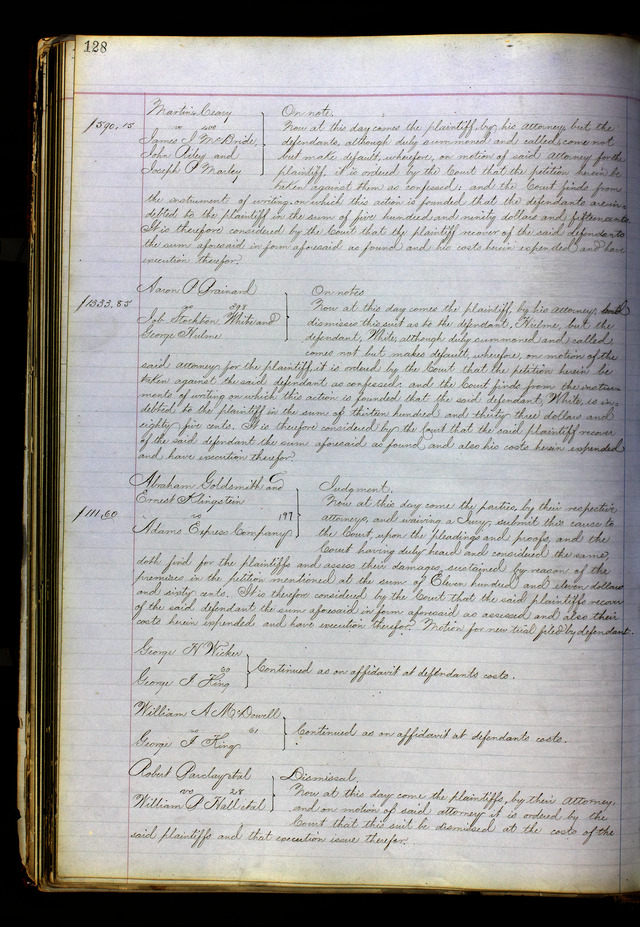 128
Martin Cary On note.
$590.15 vs 400 Now at this day comes the plaintiff, by his attorney, but the
James I McBride, defendants, although duly summoned and called, come not
John Riley and but make default, wherefore, on motion of said attorney for the
Joseph P Marley plaintiff, it is ordered by the Court that the petition herein be
taken against them as confessed; and the Court finds from
the instrument of writing on which this action is founded that the defendants are in-
debted to the plaintiff in the sum of five hundred and ninety dollars and fifteen cents
It is therefore considered by the Court that the plaintiff recover of the said defendants
the sum aforesaid in form aforesaid as found and his costs herein expended and have
execution therefor.
Aaron P Brainard On notes
$1333.85 vs 393 Now at this day comes the plaintiff, by his attorney,
Job Stockton White and dismisses this suit as to the defendant, Hulme, but the
George Hulme defendant, White, although duly summoned and called
comes not but makes default, wherefore, on motion of the
said attorney for the plaintiff, it is ordered by the Court that the petition herein be
taken against the said defendant as confessed; and the Court finds from the instru-
ments of writing on which this action is founded that the said defendant, White, is in-
debted to the plaintiff in the sum of thirteen hundred and thirty three dollars and
eighty five cents. It is therefore considered by the Court that the said plaintiff recover
of the said defendant the sum aforesaid as found and also his costs herein expended
and have execution therefor.
Abraham Goldsmith and Judgment.
Ernest Klingstein Now at this day come the parties, by their respective
$1111.60 vs 197 attorneys, and waiving a Jury, submit this cause to
Adams Express Company the Court, upon the pleadings and proofs, and the
Court having duly heard and considered the same,
doth find for the plaintiffs and assess their damages, sustained by reason of the
premises in the petition mentioned at the sum of Eleven hundred and eleven dollars
and sixty cents. It is therefore considered by the Court that the said plaintiffs recover
of the said defendant the sum aforesaid in form aforesaid as assessed and also their
costs herein expended and have execution therefor. Motion for new trial filed by defendant.
George H Wicker
vs 60 Continued as on affidavit at defendants costs.
George I King
William A McDowell
vs 61 Continued as on affidavit at defendants costs.
George I King
Robert Barclay etal Dismissal.
vs 28 Now at this day come the plaintiffs, by their attorney,
William P Hall etal and on motion of said attorney it is ordered by the
Court that this suit be dismissed at the costs of the
said plaintiffs and that execution issue therefor.